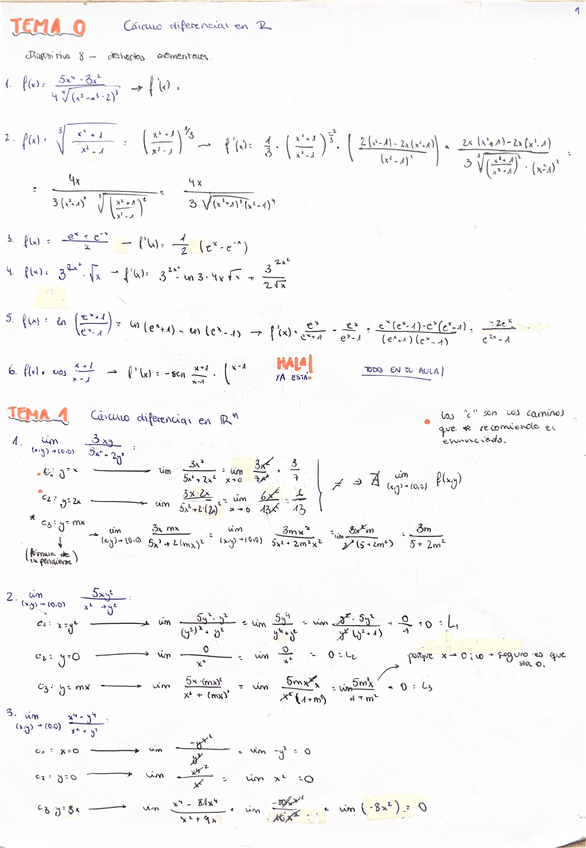 1
TEMA 0 Cálculo diferencial en R
Diapositiva 8 - derivadas elementales.
1. f(x) = (5x⁴ - 3x²) / (4 ∜(x³-x²-2)³) → f'(x) =
2. f(x) = ∛((x²+1)/(x²-1)) = ((x²+1)/(x²-1))^(1/3) → f'(x) = 1/3 · ((x²+1)/(x²-1))^(-2/3) ·
= 4x / (3(x²-1)² ∛((x²+1)/(x²-1))²) = 4x / (3 ∛((x²+1)²(x²-1)⁴))
3. f(x) = (eˣ + e⁻ˣ)/2 → f'(x) = 1/2 (eˣ - e⁻ˣ)
4. f(x) = 3^(2x²) · √x → f'(x) = 3^(2x²) · ln 3 · 4x √x + 3^(2x²)/(2√x)
5. f(x) = ln ((eˣ+1)/(eˣ-1)) = ln (eˣ+1) - ln (eˣ-1) → f'(x) = eˣ/(eˣ+1) - eˣ/(eˣ-1) = = -2eˣ/(e²ˣ-1)
6. f(x) = cos (x+1)/(x-1) → f'(x) = -sen (x+1)/(x-1) · (x-1
HALA!
YA ESTÁ.
TODO EN EL AULA!
TEMA 1 Cálculo diferencial en Rⁿ
Los "c" son los caminos
que te recomienda el
enunciado.
1. lim (x,y)→(0,0) 3xy/(5x²+2y²) :
c₁: y=x → lim 3x²/(5x²+2x²) = lim x→0 3x²/7x² = 3/7
c₂: y=2x → lim 3x·2x/(5x²+2·(2x)²) = lim x→0 6x²/13x² = 6/13
≠ ⇒ ∄ lim (x,y)→(0,0) f(x,y)
* c₃: y=mx → lim (x,y)→(0,0) 3x mx/(5x²+2(mx)²) = lim (x,y)→(0,0) 3mx²/(5x²+2m²x²) = lim 3x²m/(x²(5+2m²)) = 3m/(5+2m²)
2. lim (x,y)→(0,0) 5xy²/(x²+y²) :
c₁: x=y² → lim 5y²·y²/((y²)²+y²) = lim 5y⁴/(y⁴+y²) = lim y²·5y²/(y²(y²+1)) = 0/1 = 0 = L₁
c₂: y=0 → lim 0/x² = lim 0/x² = 0 = L₂
porque x → 0 ; 0 → seguro es que
sea 0.
c₃: y=mx → lim 5x·(mx)²/(x²+(mx)²) = lim = lim = 0 = L₃
3. lim (x,y)→(0,0) (x⁴-y⁴)/(x²+y²) :
c₁: x=0 → lim = lim -y² = 0
c₂: y=0 → lim = lim x² = 0
c₃ y=3x → lim (x⁴-81x⁴)/(x²+9x) = lim = lim (-8x²) = 0